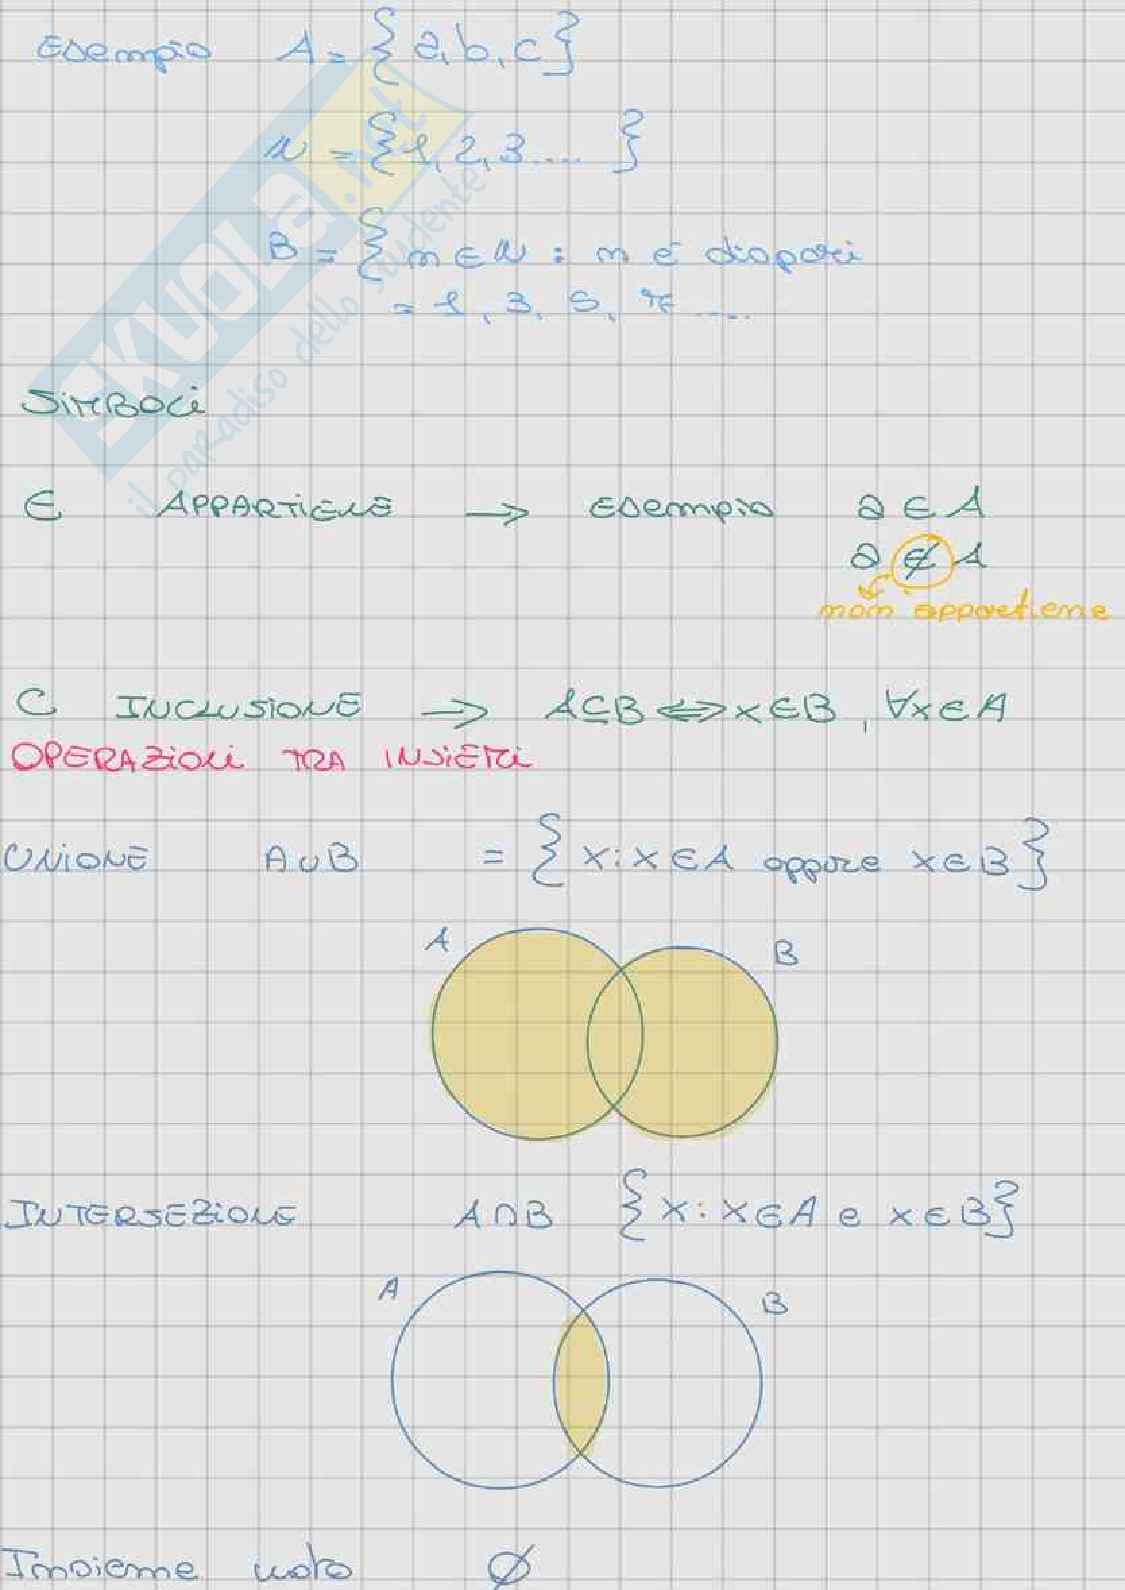 Esempio A = {a, b, c}
N = {1, 2, 3 .... }
B = { n ∈ N : n é dispari
= 1, 3, 5, 7 ....
SIMBOLI
∈ APPARTIENE → Esempio a ∈ A
a ∉ A
non appartiene
⊂ INCLUSIONE → A ⊆ B ⟺ x ∈ B , ∀x ∈ A
OPERAZIONI TRA INSIEMI
UNIONE A ∪ B = { x : x ∈ A oppure x ∈ B }
A B
INTERSEZIONE A ∩ B { x : x ∈ A e x ∈ B }
A B
Insieme vuoto ∅
SKUOLA.net
il paradiso dello studente